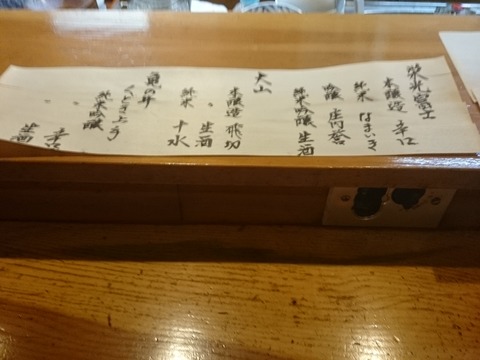 栄光冨士
本醸造 辛口
純米 なまいき
吟醸 庄内誉
純米吟醸 生酒
大山
本醸造 飛切
〃 生酒
純米 十水
亀の井
くどき上手
純米吟醸
〃 辛口
生酒